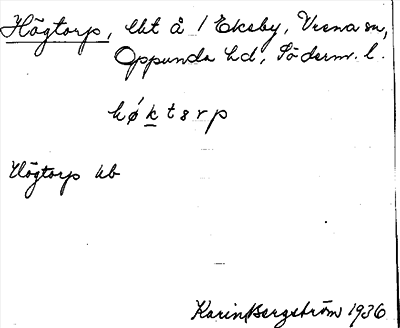 Högtorp, lht å 1 Eksby, Vrena sn,
Oppunda hd, Söderm. l.
hø´ktsrp
Högtorp hb
Karin Bergström 1936